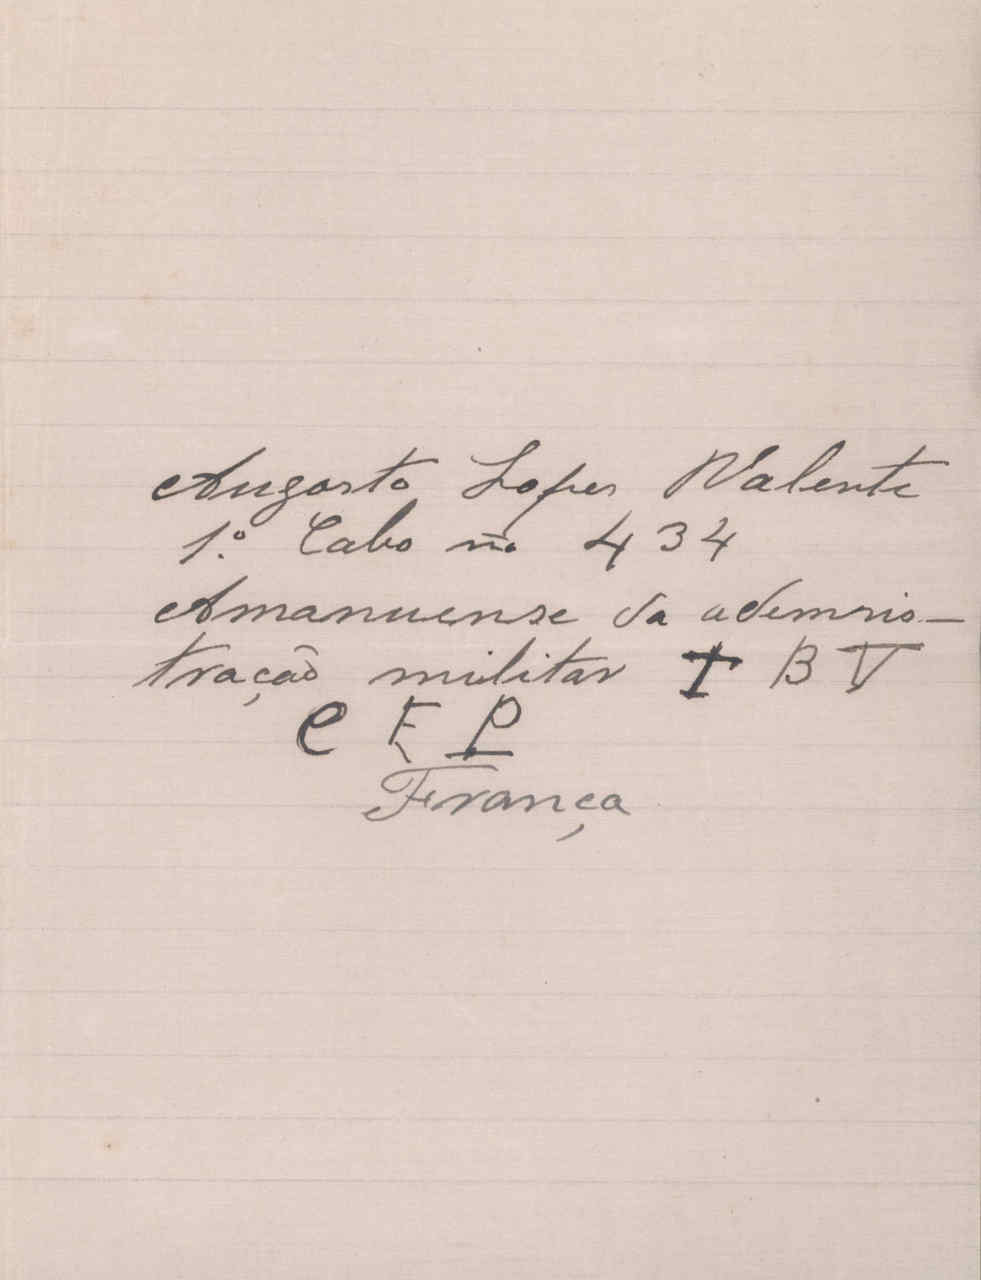 Augosto Lopes Valente
1.º Cabo nº 434
Amanuense da ademnis-
tração militar I B V
C E P
França